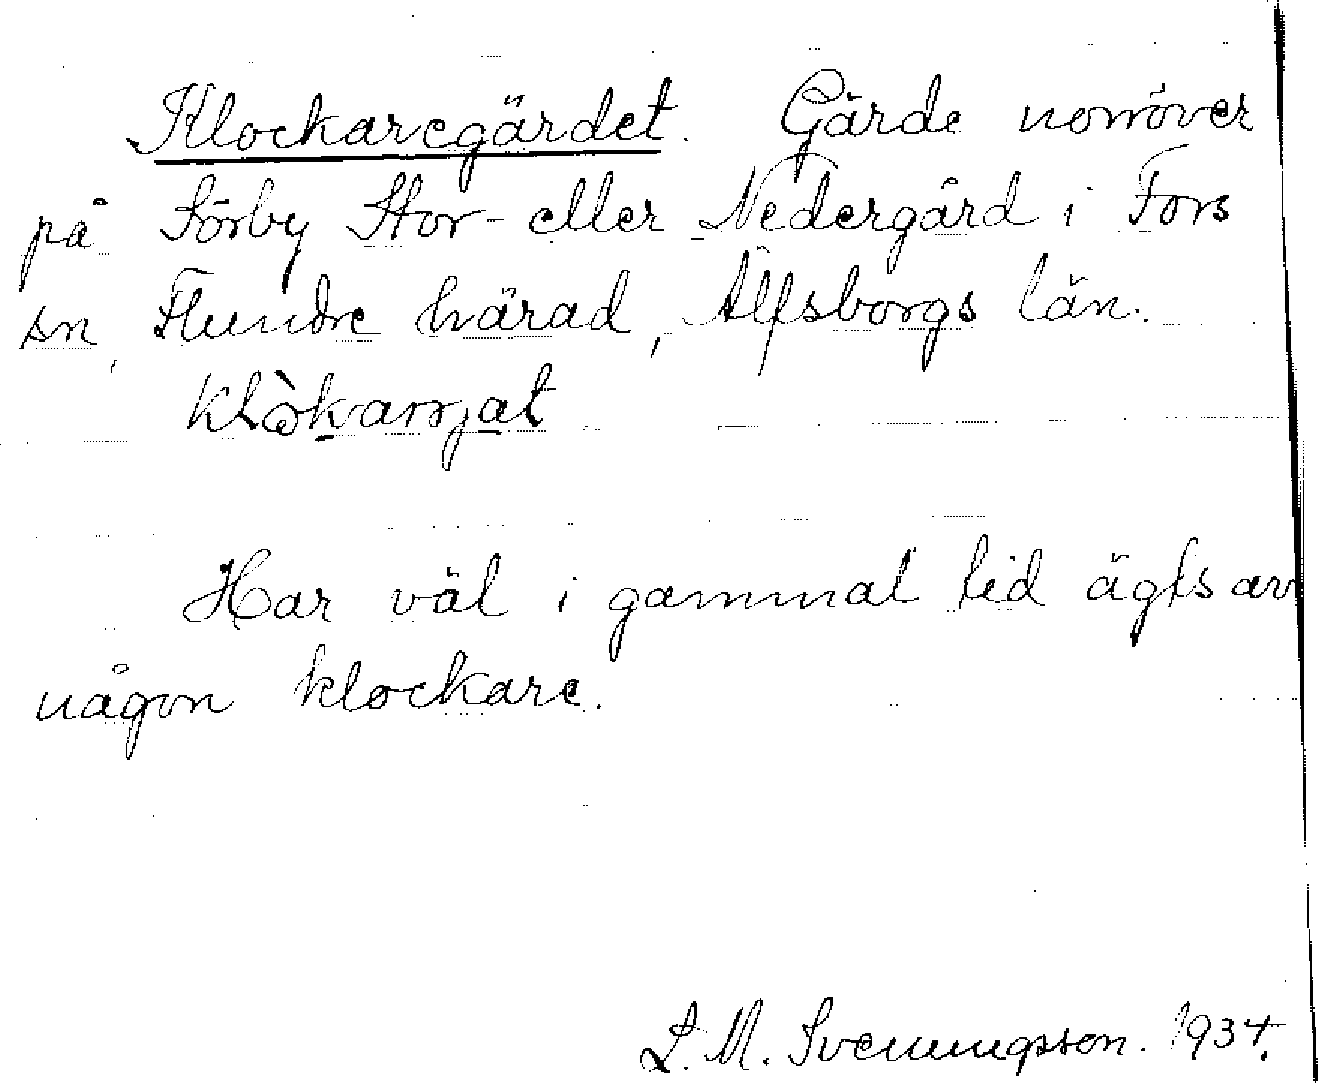 Klockaregärdet. Gärde norröver
på Sörby Stor- eller Nedergård i Fors
sn, Flundre härad, Älfsborgs län.
Har väl i gammal tid ägts av
någon klockare.
L. M. Svenungsson. 1934.